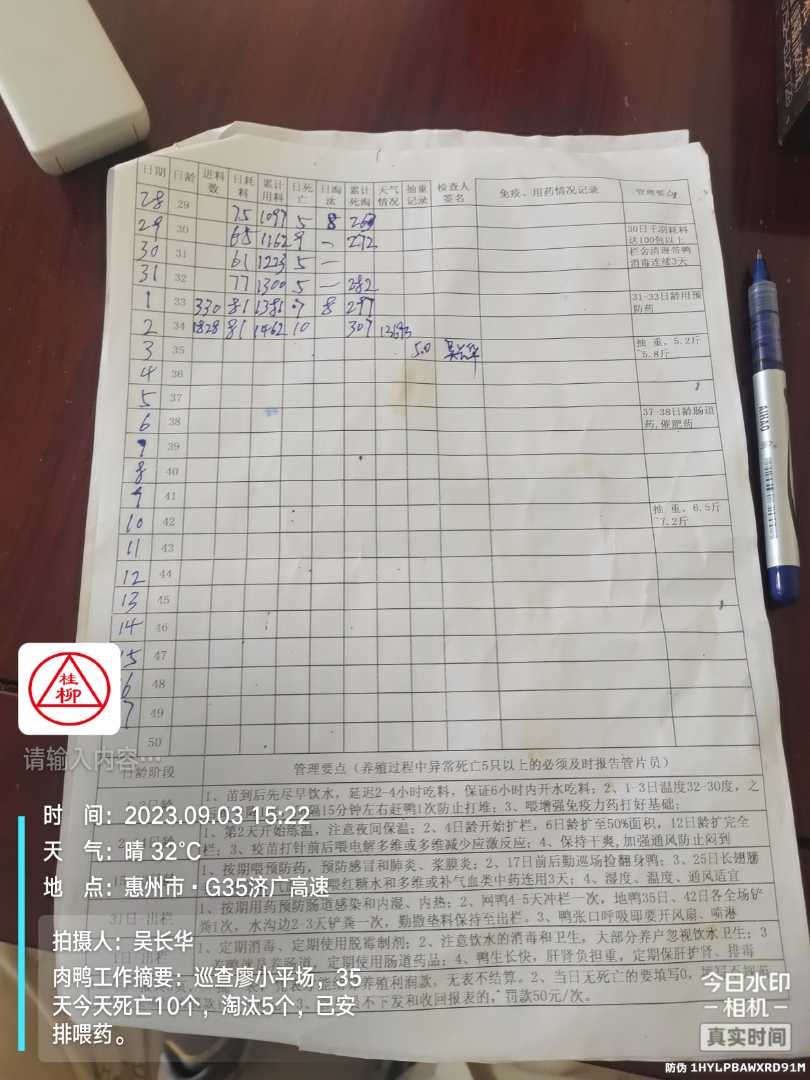 日期 日龄 进料数 日耗料 累计用料 日死亡 日淘汰 累计死淘 天气情况 抽重记录 检查人签名 免疫、用药情况记录 管理要点
28 29 75 1097 5 8
29 30 65 1162 9 - 272 30日千羽耗料达100包以上
30 31 61 1223 5 - 栏舍清理带鸭消毒连续3天
31 32 77 1300 5 - 282
1 33 330 81 1381 7 8 297 31-33日龄用预防药
2 34 1828 81 1462 10 307
3 35 5.0 吴长华 抽重,5.2斤~5.8斤
4 36
5 37
6 38 37-38日龄肠道药,催肥药
7 39
8 40
9 41
10 42 抽重,6.5斤~7.2斤
11 43
12 44
13 45
14 46
15 47
48
49
50
桂柳
请输入内容…
日龄阶段 管理要点（养殖过程中异常死亡5只以上的必须及时报告管片员）
1、苗到后先尽早饮水，延迟2-4小时吃料，保证6小时内开水吃料；2、1-3日温度32-30度，之
隔15分钟左右赶鸭1次防止打堆；3、喂增强免疫力药打好基础；
1、第2天开始炼温，注意夜间保温；2、4日龄开始扩栏，6日龄扩至50%面积，12日龄扩完全
栏；3、疫苗打针前后喂电解多维或多维减少应激反应；4、保持干爽，加强通风防止闷到
1、按期喂预防药，预防感冒和肺炎、浆膜炎；2、17日前后勤巡场捡翻身鸭；3、25日长翅膀
喂红糖水和多维或补气血类中药连用3天；4、湿度、温度、通风适宜
31日-出栏 1、按期用药预防肠道感染和内湿、内热；2、网鸭4-5天冲栏一次，地鸭35日、42日各全场铲
粪1次，水沟边2-3天铲粪一次，勤撒垫料保持至出栏。3、鸭张口呼吸即要开风扇、喷淋
1日-出栏 1、定期消毒、定期使用脱霉制剂；2、注意饮水的消毒和卫生，大部分养户忽视饮水卫生；3
定期使用肠道药品；4、鸭生长快，肝肾负担重，定期保肝护肾、排毒
养殖利润款，无表不结算。2、当日无死亡的要填写0，
不下发和收回报表的，罚款50元/次。
时 间：2023.09.03 15:22
天 气：晴 32℃
地 点：惠州市·G35济广高速
拍摄人：吴长华
肉鸭工作摘要：巡查廖小平场，35
天今天死亡10个，淘汰5个，已安
排喂药。
今日水印
相机
真实时间
防伪 1HYLPBAWXRD91M
AIHAO